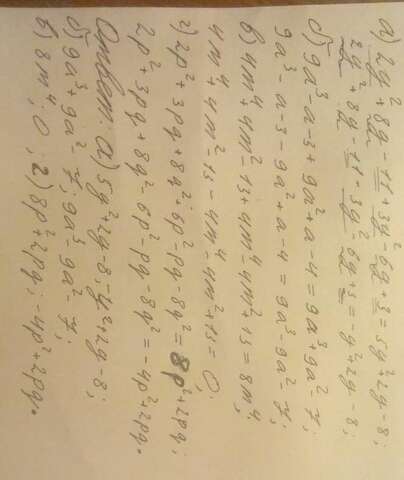 а) 2y²+8y-11+3y²-6y+3=5y²+2y-8;
2y²+8y-11-3y²-6y+3=-y²+2y-8;
б) 9a³-a-3+9a²+a-4=9a³+9a²-7;
9a³-a-3-9a²+a-4=9a³-9a²-7;
в) 4m⁴+4m²-13+4m⁴-4m²+13=8m⁴;
4m⁴+4m²-13-4m⁴-4m²+13=0;
г) 2p²+3pq+8q²+6p²-pq-8q²=8p²+2pq;
2p²+3pq+8q²-6p²-pq-8q²=-4p²+2pq.
Ответ: а) 5y²+2y-8; -y²+2y-8;
б) 9a³+9a²-7; 9a³-9a²-7;
в) 8m⁴; 0; г) 8p²+2pq; -4p²+2pq.